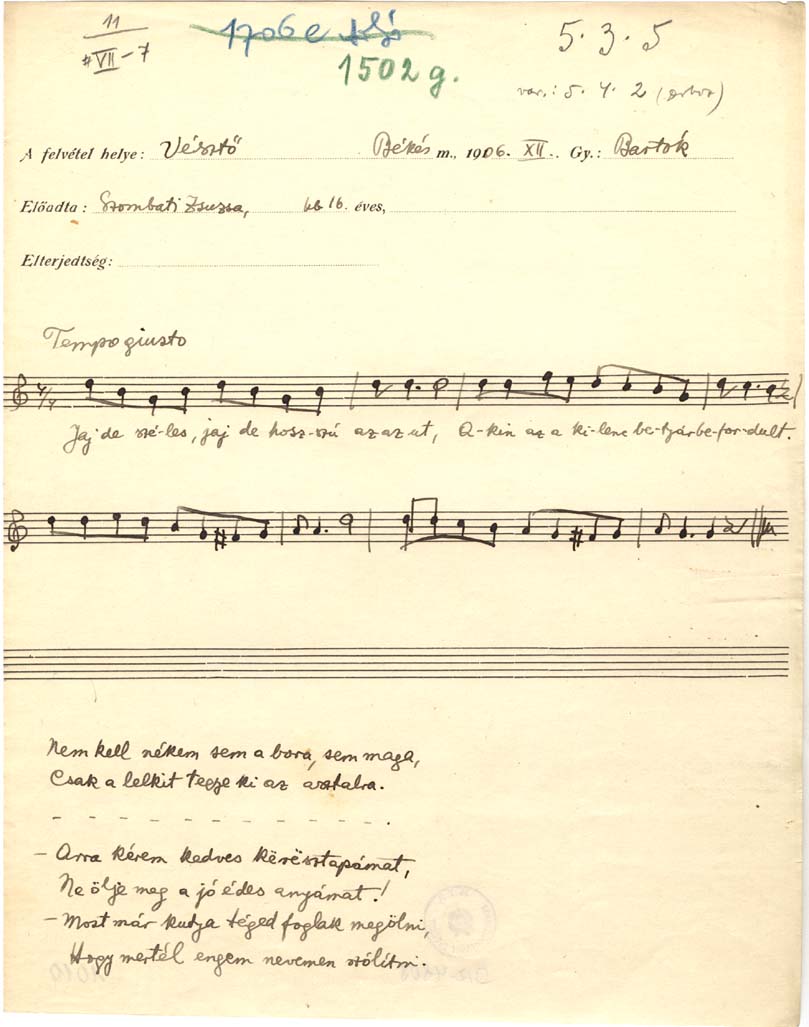 11
VII-7
1706e alsó
1502g.
5. 3. 5
var.: 5. 4. 2
A felvétel helye: Vésztő Békés m., 1906. XII.. Gy.: Bartók
Előadta: Szombati Zsuzsa, kb 16. éves,
Elterjedtség:
Tempo giusto
4/4
Jaj de szé-les, jaj de hosz-szú az az ut, A-kin az a ki-lenc be-tyár be-for-dult.
Nem kell nékem sem a bora, sem maga,
Csak a lelkit tegye ki az asztalra.
- - - - - - - - - - - - - .
- Arra kérem kedves kërësztapámat,
Ne ölje meg a jó édes anyámat!
- Most már kutya téged foglak megölni,
Hogy mertél engem nevemen szólítni.